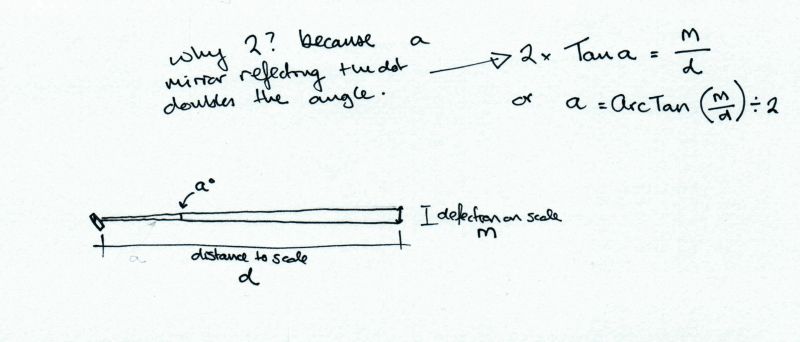 why 2? because a
mirror reflecting the dot
doubles the angle.
2 x Tan a = m/d
or a = arcTan (m/d) ÷ 2
a°
I deflection on scale
m
a
distance to scale
d